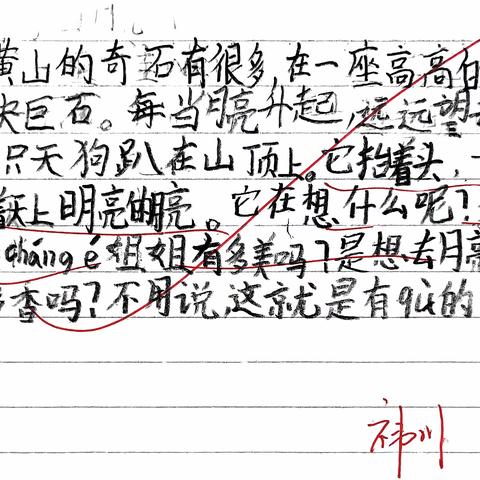 黄山的奇石有很多,在一座高高
块巨石。每当月亮升起,远远望
只天狗趴在山顶上。它抬着头,一
着天上明亮的月亮。它在想什么呢?
cháng é姐姐有多美吗?是想去月亮
香吗?不用说,这就是有qù的